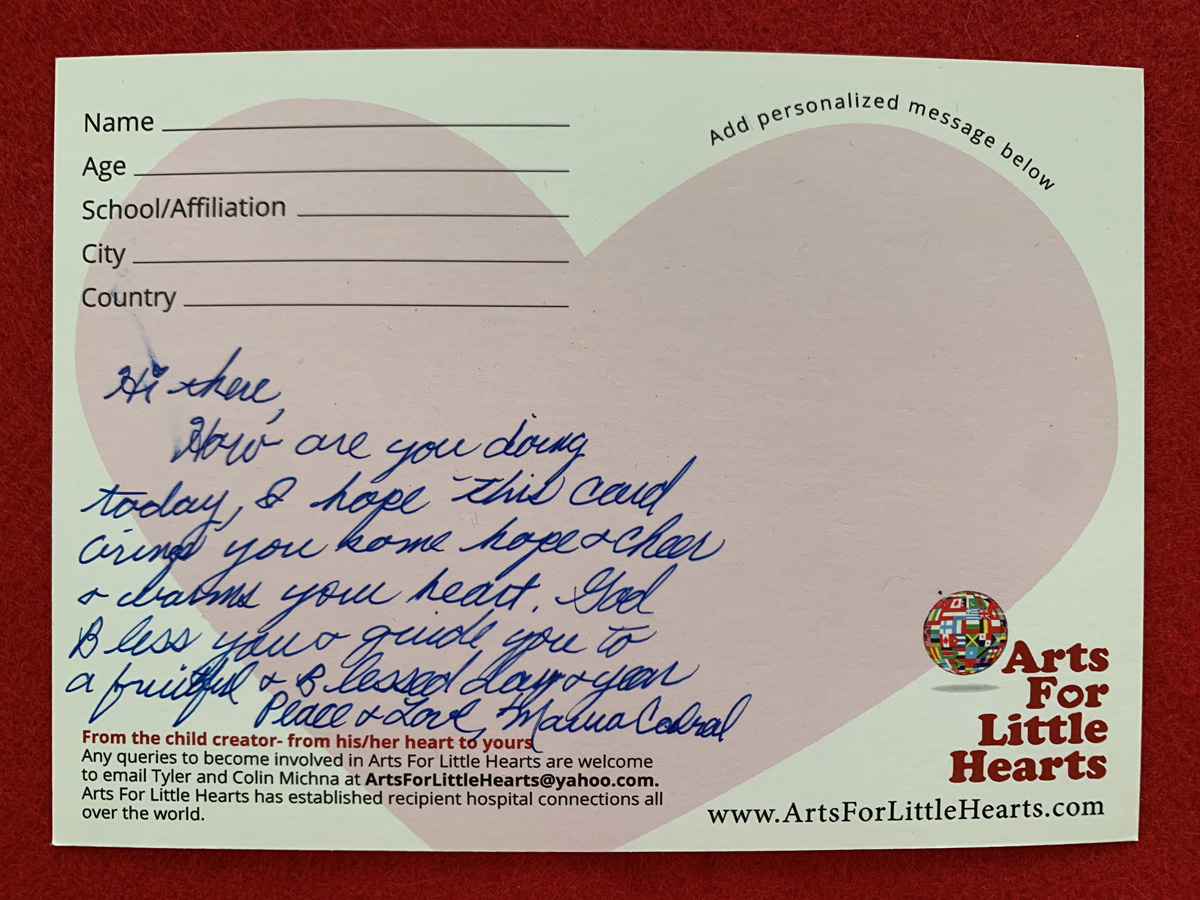 Name
Age
School/Affiliation
City
Country
Add personalized message below
Hi there,
How are you doing
today, I hope this card
brings you some hope & cheer
& warms your heart. God
Bless you & guide you to
a fruitful & Blessed day & year
Peace & Love, Maria Cabral
From the child creator- from his/her heart to yours
Any queries to become involved in Arts For Little Hearts are welcome
to email Tyler and Colin Michna at ArtsForLittleHearts@yahoo.com.
Arts For Little Hearts has established recipient hospital connections all
over the world.
Arts
For
Little
Hearts
www.ArtsForLittleHearts.com